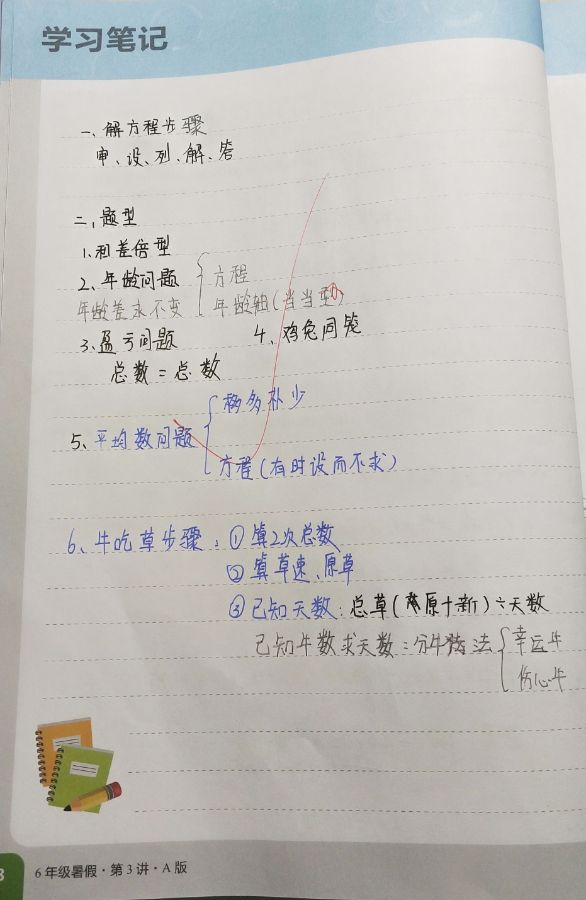 学习笔记
一、解方程步骤
审、设、列、解、答
二、题型
1.和差倍型
2、年龄问题 方程
年龄差永不变 年龄轴(当当型)
3、盈亏问题 4、鸡兔同笼
总数=总数
移多补少
5、平均数问题
方程(有时设而不求)
6、牛吃草步骤:①算2次总数
②算草速、原草
③已知天数:总草(原+新)÷天数
已知牛数求天数:分牛法 幸运牛
伤心牛
6年级暑假·第3讲·A版